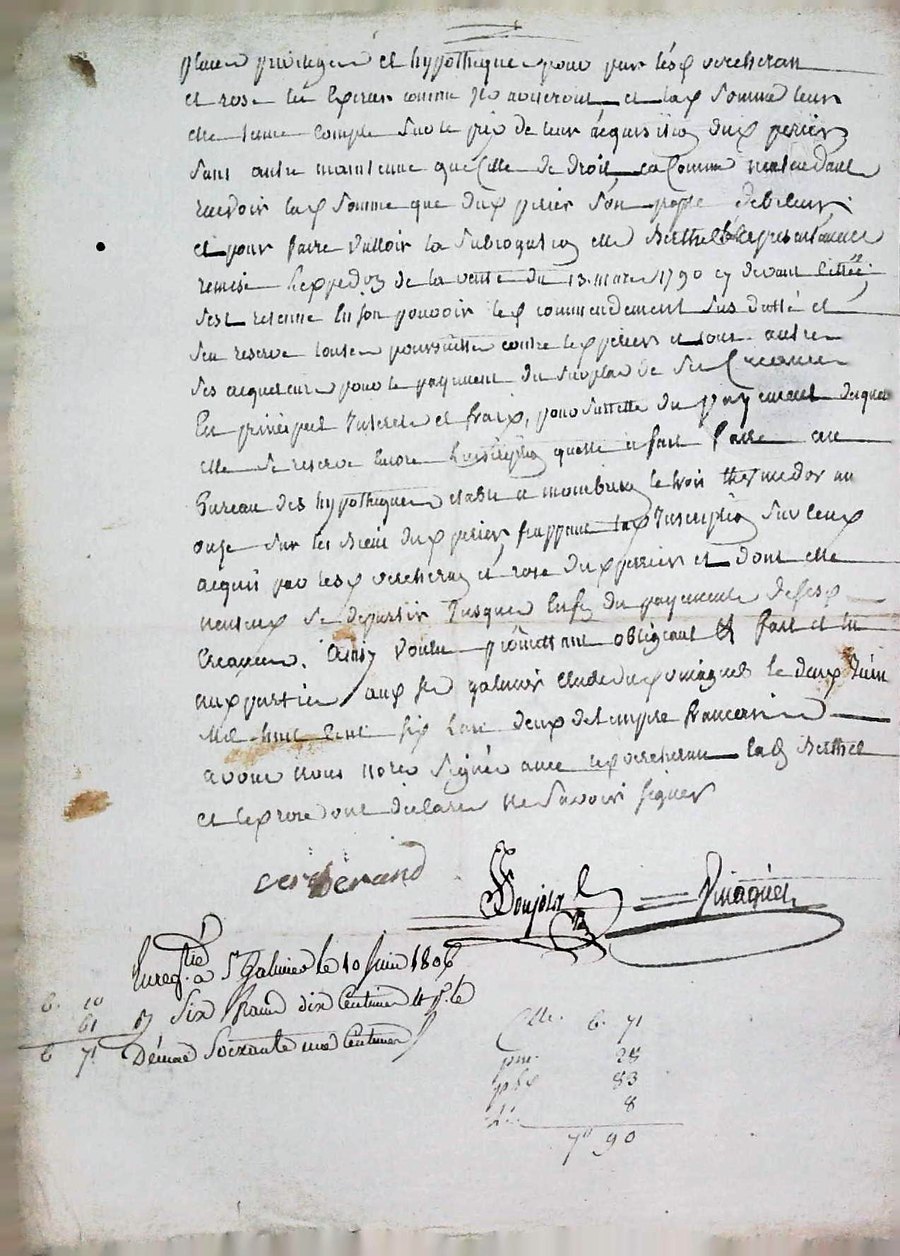 places privileges et hypotheques pour par lesd vercherand
et rose les exercer comme ils aviseront et lad somme leur
etre tenue compte sur le prix de leur acquisition dud perier
sans autre maintenue que celle de droit, et comme n'entendant
recevoir lad somme que dud perier son propre debiteur
et pour faire valloir la subrogation elle Berthet a presentement
remise l'expedon de la vente du 13 mars 1790 cy devant cittée
s'est retenue en son pouvoir led commendement sus datté et
se reserve toutes poursuittes contre led perier et tous autres
ses acquereurs pour le payement du surplus de sa creance
en principal interets et fraix, pour suretté du payement desquels
elle se reserve encore l'inscription quelle a fait faire au
Bureau des hypotheques etabli a montbrison le trois thermedor an
onze sur les Biens dud perier, frappant lad Inscription sur ceux
acquis par lesd vercherand et rose dud perrier et dont elle
n'entend se departir jusques enfin du payement de sesd
creances. Ainsy voulu promettant obligeant &c fait et lu
aux parties aud st galmier etude dud vinagnet le deux Juin
mil huit cent six l'an deux de l'empire francais
avons nous nores signés avec led vercherand lad Berthet
et led rose ont declaré ne savoir signer
vercherand
Vinagnet
Enregtré a St Galmier le 10 Juin 1806
6. 10 Six francs dix Centimes
61
6 71 Décime Soixante une Centimes
6. 71
28
83
8
7 90